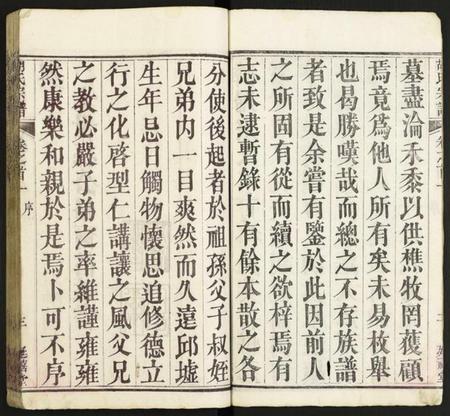 胡氏宗譜
卷之首
墓盡淪禾黍以供樵牧罔獲顧
焉竟爲他人所有矣未易枚舉
也曷勝嘆哉而總之不存族譜
者致是余嘗有鑒於此因前人
之所固有從而續之欲梓焉有
志未逮暫錄十有餘本散之各
分使後起者於祖孫父子叔姪
兄弟内一目爽然而久遠邱墟
生年忌日觸物懷思追修德立
行之化啓型仁講讓之風父兄
之教必嚴子弟之率維謹雍雍
然康樂和親於是焉卜可不序
胡氏宗譜
卷之首 序
三